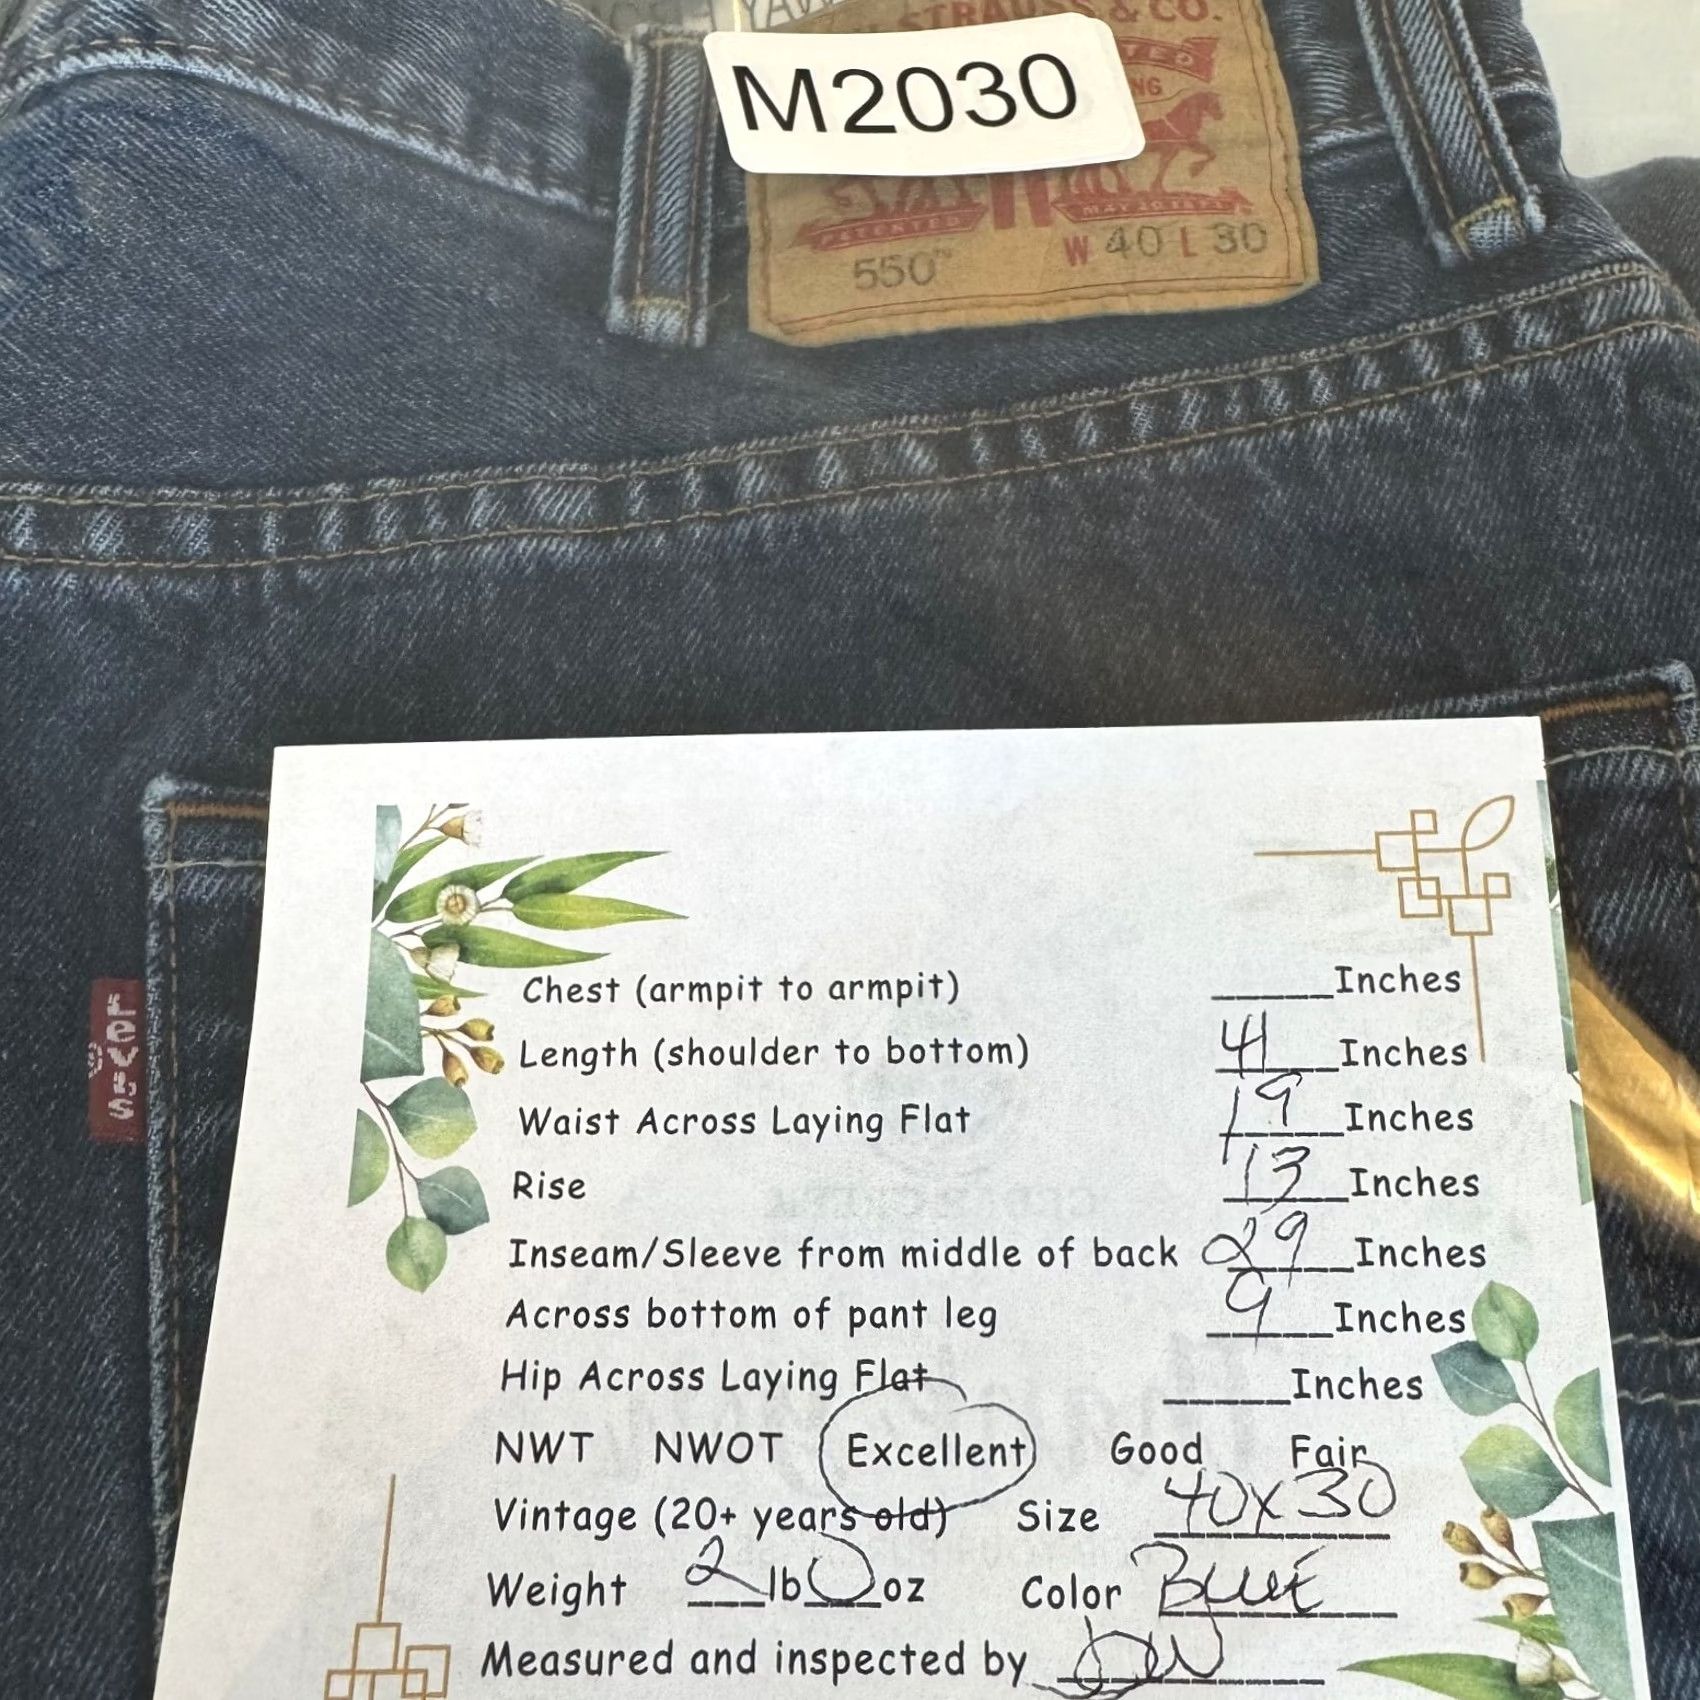 STRAUSS & CO.
M2030
NG
PATENTED MAY 20 1873
550™ W 40 L 30
Levi's
®
Chest (armpit to armipit) _____Inches
Length (shoulder to bottom) 41 Inches
Waist Across Laying Flat 19 Inches
Rise 13 Inches
Inseam/Sleeve from middle of back 29 Inches
Across bottom of pant leg 9 Inches
Hip Across Laying Flat _____Inches
NWT NWOT Excellent Good Fair
Vintage (20+ years old) Size 40x30
Weight 2 lb 0 oz Color Blue
Measured and inspected by